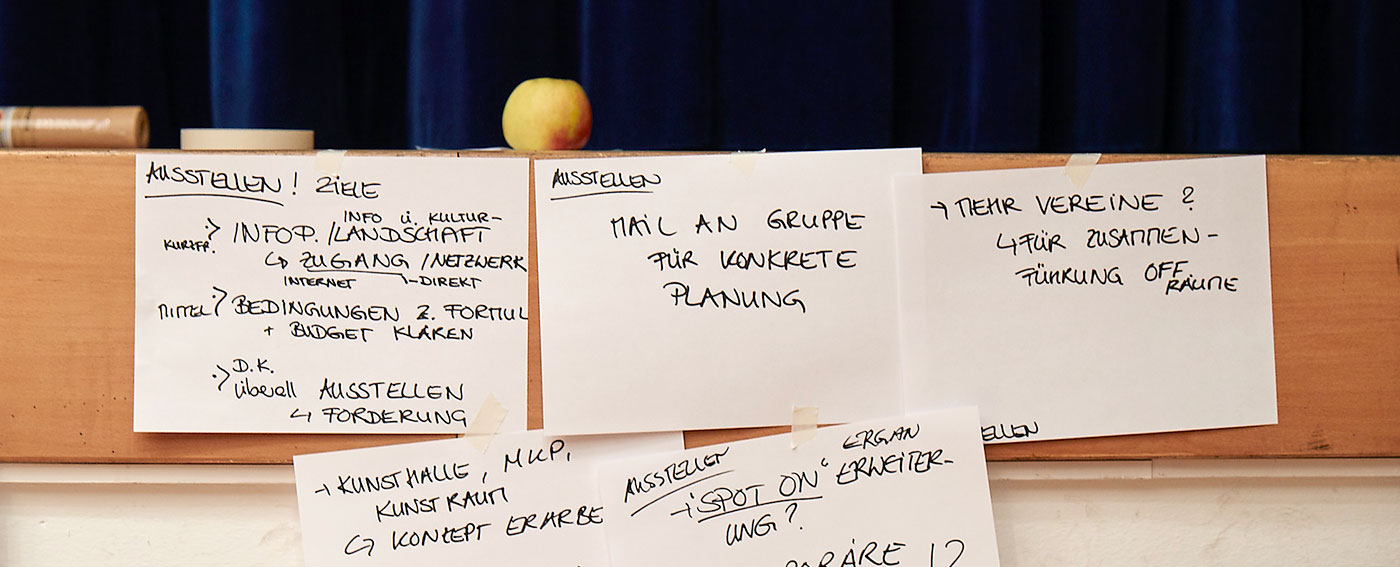 AUSSTELLEN! ZIELE
INFO Ü. KULTUR-
KURZFR. INFOP. /LANDSCHAFT
↳ ZUGANG /NETZWERK
INTERNET -DIREKT
MITTEL BEDINGUNGEN Z. FORMUL
+ BUDGET KLÄREN
D.K.
überall AUSSTELLEN
↳ FÖRDERUNG
AUSSTELLEN
MAIL AN GRUPPE
FÜR KONKRETE
PLANUNG
→ MEHR VEREINE?
↳ FÜR ZUSAMMEN-
FÜHRUNG OFF
RÄUME
ELLEN
→ KUNSTHALLE, MKP,
KUNSTRAUM
↳ KONZEPT ERARBE
AUSSTELLEN
ERGÄN
→ „SPOT ON“ ERWEITER-
UNG?